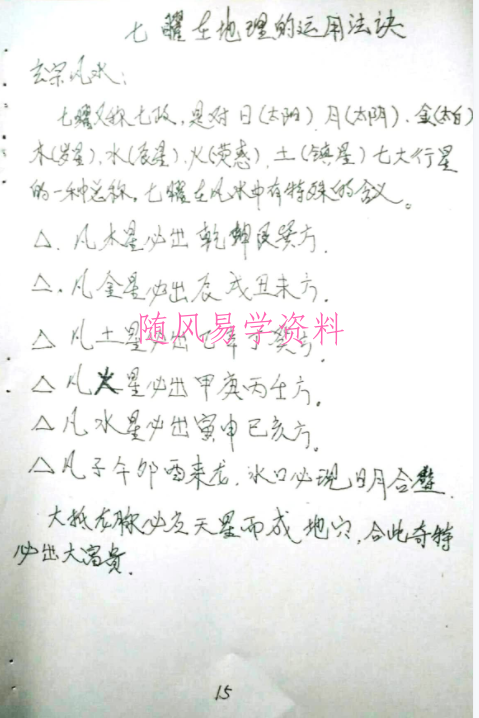 七耀在地理的运用法诀
玄宗风水:
七耀又称七政,是对日(太阳)月(太阴)、金(太白)
木(岁星)、水(辰星)、火(荧惑)、土(镇星)七大行星
的一种总称。七耀在风水中有特殊的含义。
△. 凡木星必出乾坤艮巽方.
△. 凡金星必出辰戌丑未方.
随风易学资料
△ 凡土星必出乙辛丁癸方。
△ 凡火星必出甲庚丙壬方。
△ 凡水星必出寅申巳亥方。
△ 凡子午卯酉来龙.水口必现日月合璧.
大抵龙脉必应天星而成地穴,合此奇特
必出大富贵.
15